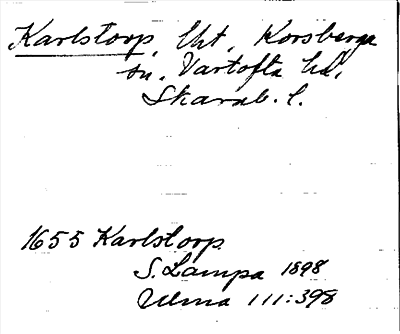 Karlstorp, lht, Korsberga
sn. Vartofta hd,
Skarab. l.
1655 Karlstorp.
S. Lampa 1898
Ulma 111:398